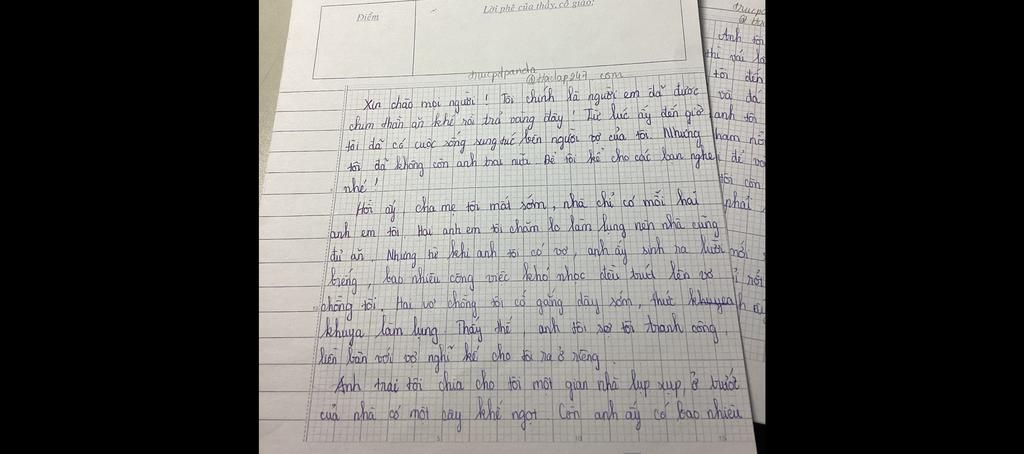 Điểm
Lời phê của thầy, cô giáo:
trucpdpanda
@Hoclap247.com
Xin chào mọi người! Tôi chính là người em đã được
chim thần ăn khế rồi trả vàng đây! Từ lúc ấy đến giờ
tôi đã có cuộc sống sung túc bên người vợ của tôi. Nhưng
tôi đã không còn anh trai nữa. Để tôi kể cho các bạn nghe
nhé!
Hồi ấy, cha mẹ tôi mất sớm, nhà chỉ có mỗi hai
anh em tôi. Hai anh em tôi chăm lo làm lụng nên nhà cũng
đủ ăn. Nhưng từ khi anh tôi có vợ, anh ấy sinh ra lười
biếng, bao nhiêu công việc khó nhọc đều trút lên vợ
chồng tôi. Hai vợ chồng tôi cố gắng dậy sớm, thức khuyeah
khuya làm lụng. Thấy thế, anh tôi sợ tôi tranh công,
liền bàn với vợ nghĩ kế cho tôi ra ở riêng.
Anh trai tôi chia cho tôi một gian nhà lụp xụp, ở trước
cửa nhà có một cây khế ngọt. Còn anh ấy có bao nhiêu
trucp
Anh tôi
thì vài
tôi đến
và đá
anh tôi
ham
để vợ
tôi còn
phải
nói
rồi